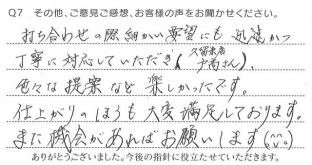 Q7 その他、ご意見ご感想、お客様の声をお聞かせください。
打ち合わせの際細かい要望にも迅速かつ
丁寧に対応していただき(久留米店 戸高さん)、
色々な提案など楽しかったです。
仕上がりのほうも大変満足しております。
また機会があればお願いします(^^)
ありがとうございました。今後の指針に役立たせていただきます。